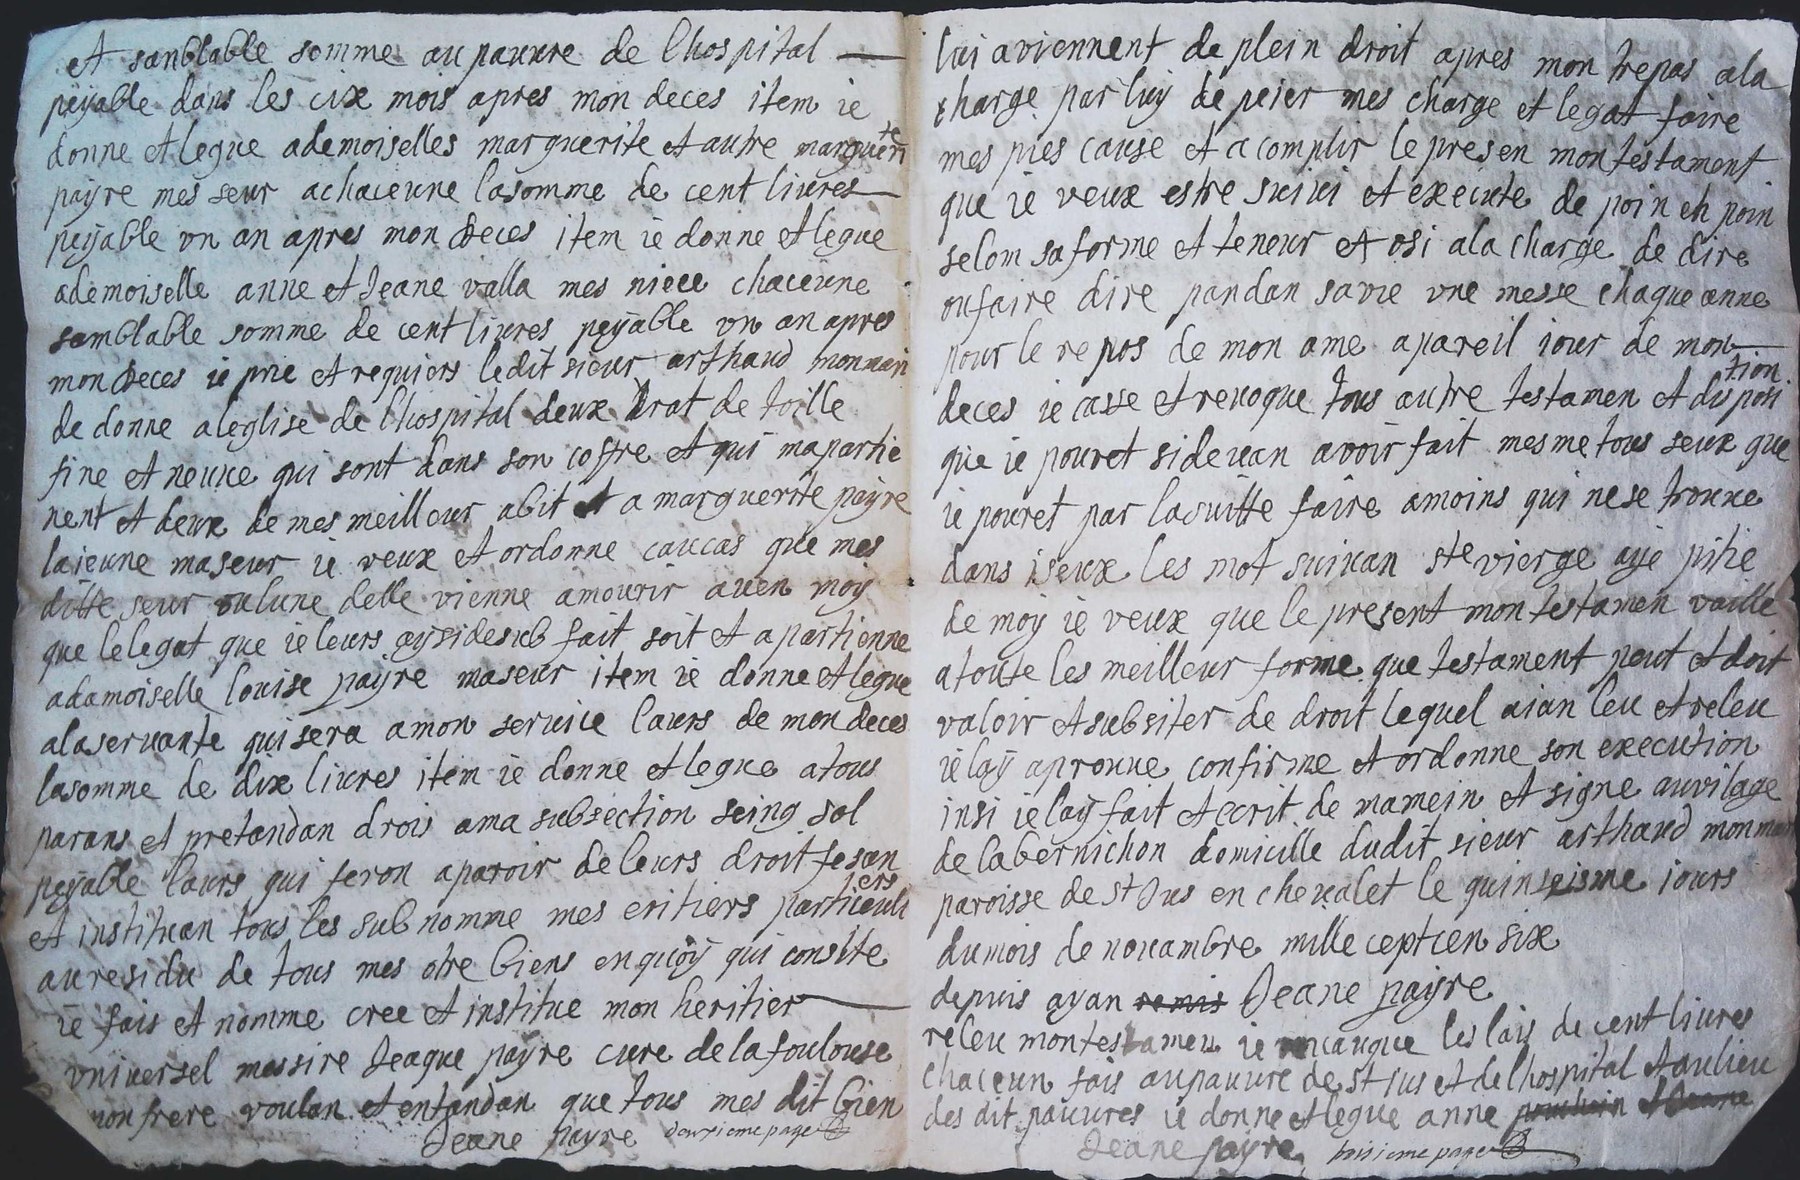 et sanblable somme au pauvre de lhospital
peyable dans les cix mois apres mon deces item ie
donne et legue ademoiselles marguerite et autre marguerite
payre mes seur achaceune lasomme de cent livres
peyable vn an apres mon deces item ie donne et legue
ademoiselle anne et Jeane valla mes niece chaceune
samblable somme de cent livres peyable vn an apres
mon deces ie prie et requiers ledit sieur arthaud monmari
de donne aleglise de lhospital deux Drat de toille
fine et neuve qui sont dans son coffre et qui mapartie
nent et deux de mes meilleur abit et a marguerite payre
lajeune maseur ie veux et ordonne caucas que mes
ditte seur oulune delle vienne amourir aven moy
que lelegat que ie leurs ay sidesub fait soit et apartienne
adamoiselle louise payre maseur item ie donne et legue
alaservante qui sera amon service laurs de mon deces
lasomme de dix livres item ie donne et legue atous
parans et pretandan drois ama subsection seing sol
peyable laurs qui feron aparoir de leurs droit fesan
et instituan tous les subnomme mes eritiers particuliers
auresidu de tous mes otre biens enquoy qui consite
ie fais et nomme cree et institue mon heritier
vniversel messire Jeaque payre cure de lafoulouse
monfrere voulan et entandan que tous mes dit bien
Jeane payre deuxieme page
lui aviennent de plein droit apres mon trepas ala
charge par luy de peier mes charge et legat faire
mes pies cause et acomplir le presen montestament
que ie veux estre suivi et execute de poin en poin
selom saforme et teneur et osi ala charge de dire
oufaire dire pandan savie vne messe chaque anne
pour le repos de mon ame apareil iour de mon
deces ie casse et revoque tous autre testamen et disposition
que ie pouret sidevan avoir fait mesme tous seux que
ie pouret par lasuitte faire amoins qui nese trouve
dans iseux les mot suivan ste vierge aye pitie
de moy ie veux que le present montestamen vaille
atoute les meilleur forme que testament peut et doit
valoir et subsiter de droit lequel aian leu et releu
ielay aprouve confirme et ordonne son execution
insi ielay fait et ecrit de mamein et signe auvilage
de labernichon domicille dudit sieur arthaud monmari
paroisse de st Jus en chevalet le quinseisme iours
dumois de novambre mille ceptcen six
depuis ayan remis Jeane payre
releu montestamen ie les lais de cent livres
chaceun fais aupauvre de st ius et de lhospital et aulieu
des dit pauvres ie donne et legue anne et Jeane
Jeane payre troisieme page